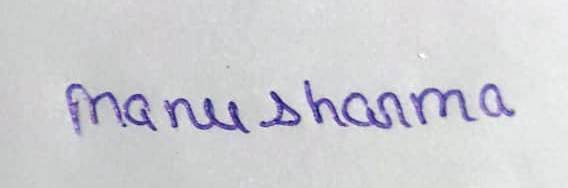 Manu sharma